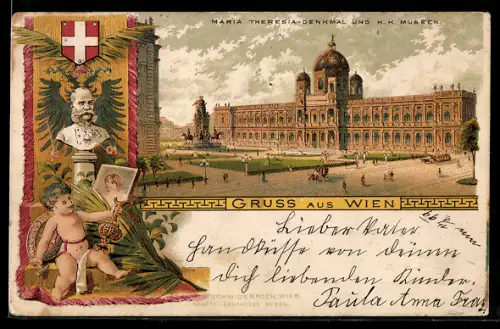 MARIA THERESIA-DENKMAL UND K. K. MUSEEN.
GRUSS AUS WIEN
Lieber Vater
Handküsse von deinen
dich liebenden Kinder.
Paula Anna
SCHWIDERNOCH, WIEN